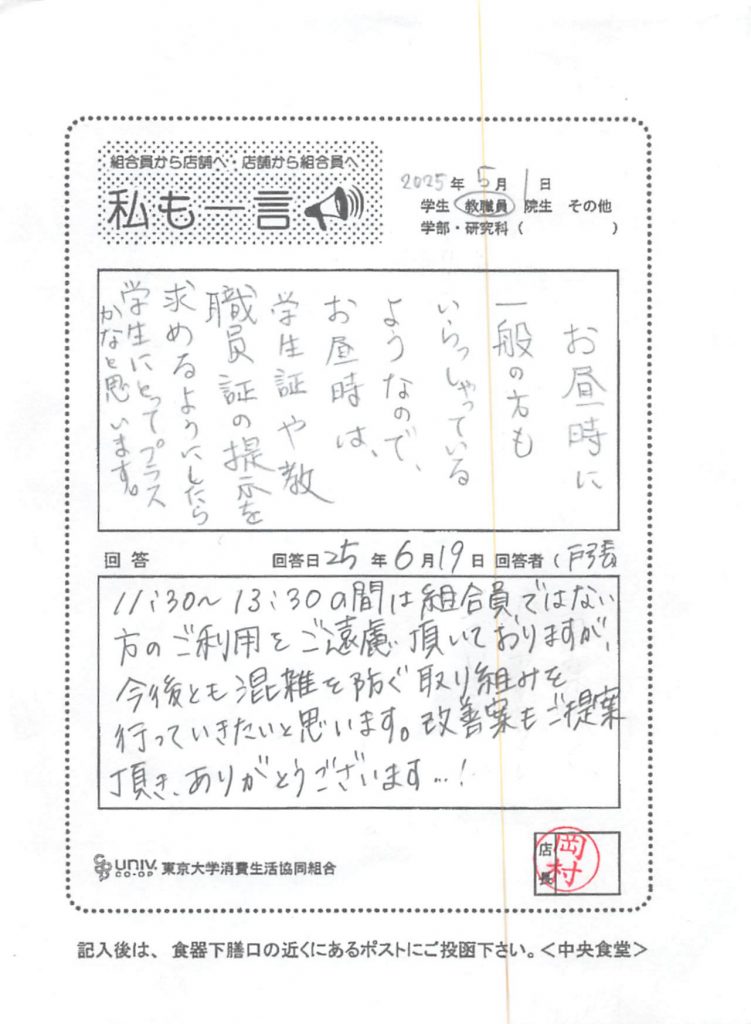 組合員から店舗へ・店舗から組合員へ
私も一言
2025年5月1日
学生 教職員 院生 その他
学部・研究科( )
お昼時に
一般の方も
いらっしゃっている
ようなので、
お昼時は、
学生証や教
職員証の提示を
求めるようにしたら
学生にとってプラス
かなと思います。
回答 回答日25年6月19日 回答者(戸張
11:30〜13:30の間は組合員ではない
方のご利用をご遠慮頂いておりますが、
今後とも混雑を防ぐ取り組みを
行っていきたいと思います。改善案もご提案
頂き、ありがとうございます…!
UNIV. CO-OP 東京大学消費生活協同組合
店長
岡村
記入後は、食器下膳口の近くにあるポストにご投函下さい。<中央食堂>